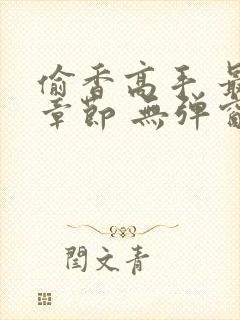 偷香高手 最
章節 無彈窗
閆文青